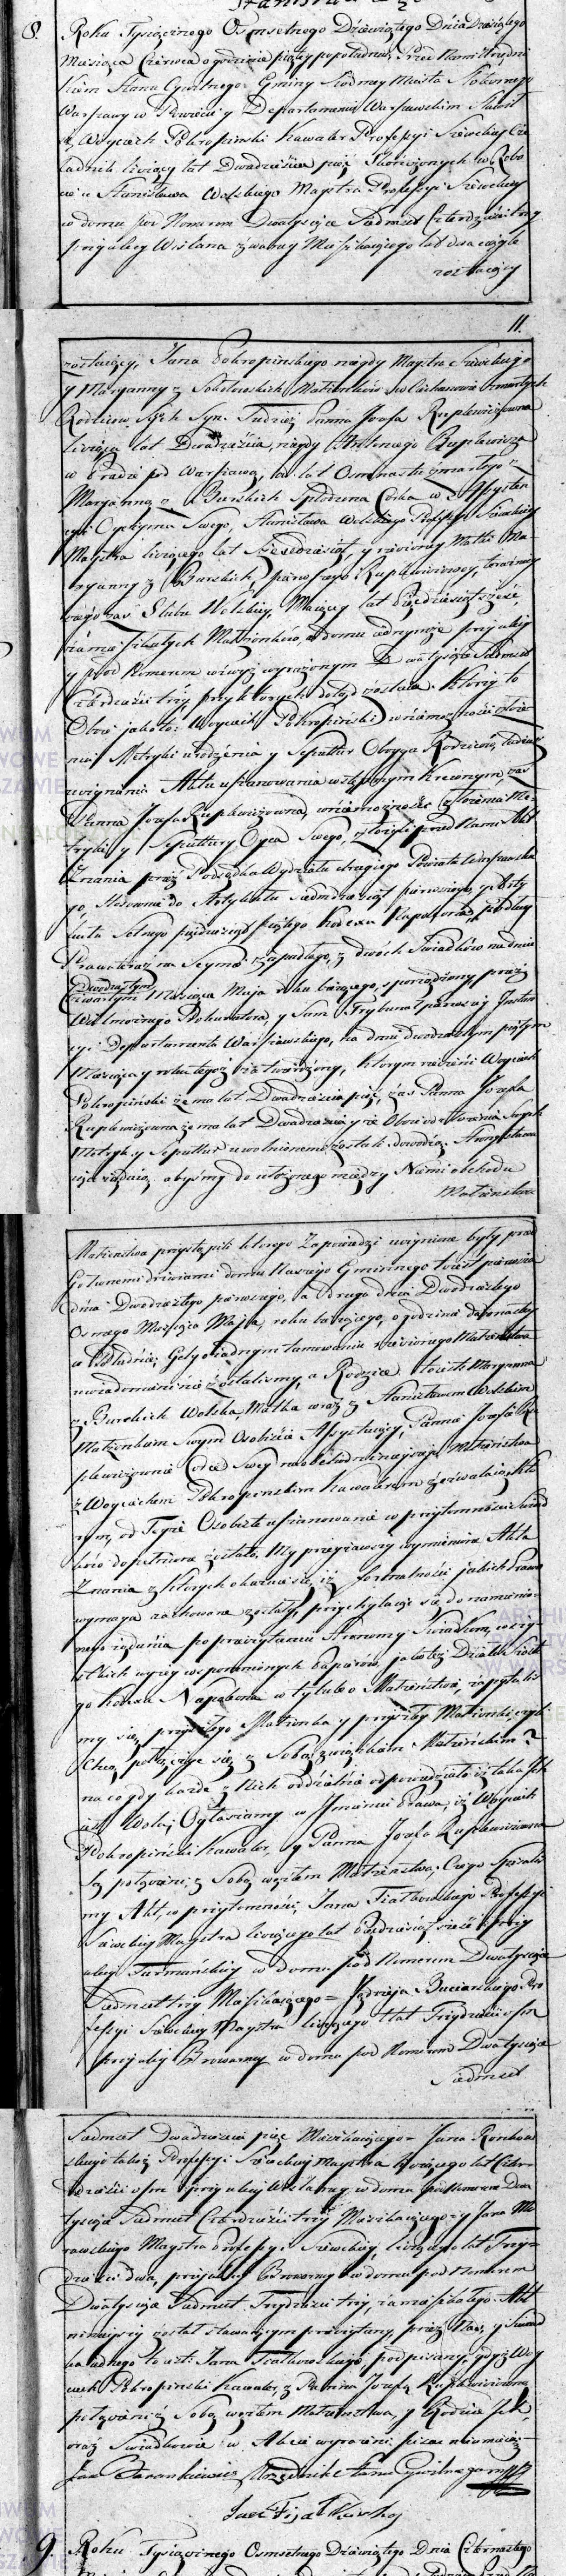 8. Roku Tysiącznego Osmsetnego Dziewiątego Dnia Dziesiątego
Miesiąca Czerwca o godzinie piątey popołudniu, Przed Nami Urzędni
kiem Stanu Cywilnego Gminy Siodmey Miasta Stołecznego
Warszawy w Powiecie y Departamencie Warszawskim Stawił
się, Woyciech Pokropinski Kawaler Professyi Szewckiey Cze
ladnik liczący lat Dwadzieścia pięć Skończonych w Robo
cie u Stanisława Wolskiego Maystra Professyi Szewckiey
w domu pod Numerem Dwatysiące Siedmset Czterdzieści trzy
przy ulicy Wiślana zwaney Mieszkaiącego lat dwa ciągle
zostaiący
11.
zostaiący, Jana Pokropinskiego niegdy Maystra Szewckiego
y Maryanny z Sokołowskich Małżonków w Ciechanowie zmarłych
Rodziców Syn. Tudzież Panna Jozefa Ruplewiczowna
licząca lat Dwadzieścia, niegdy Ruplewicza
w Pradze pod Warszawą, lat Osmnastu zmarłego z
Maryanną z Burskich Spłodzona Corka w Assysten
cyi Oyczyma Swego, Stanisława Wolskiego Professyi Szewckiey
Maystra liczącego lat y rodzoney Matki Ma
ryanny z Burskich pierwszego Ruplewiczowey, terazniey
szego zaś Slubu Wolskiey, Maiącey lat Pięćdziesiąt sześć
zamieszkałych Małżonków, w domu iednymże przy ulicy
y pod Numerem wzwyż wyrażonym Dwatysiące Siedmset
Czterdzieści trzy przy których dotąd zostaie. Którzy to
Oboie iakoto: Woyciech Pokropiński w niemożności złoże
nia Metryki urodzenia y Sepultur Oboyga Rodziców, tudzież
uczynienia Aktu uszanowania wstępnym Krewnym, zaś
Panna Jozefa Ruplewiczowna, w niemożności złożenia Me
tryki y Sepultury Oyca Swego, złożyli przed Nami Akt
Znania przez Podsędka Wydziału drugiego Powiatu Warszawskie
go, Stosownie do Artykułu Siedmdziesiąt pierwszego, y Sto
pięćdziesiąt piątego Kodexu Napoleona, podług
Prawa teraz na Seymie zapadłego, z dwóch Świadków na dniu
Dwudziestym
Czwartym Miesiąca Maja roku bieżącego, sporządzony, przez
Wielmożnego Prokuratora y Sam Trybunał pierwszej Instan
cyi Departamentu Warszawskiego, na dniu dwudziestym piątym
Miesiąca y roku tegoż zatwierdzony, którym rzeczeni Woyciech
Pokropiński że ma lat Dwadzieścia pięć, zaś Panna Jozefa
Ruplewiczowna że ma lat Dwadzieścia y że Oboie od złożenia Swych
Metryk y Sepultur uwolnionemi zostali dowodzą. Strony stawa
iące żądaią, abyśmy do ułożonego między Niemi obchodu
Małżeństwa
Małżeństwa przystąpili którego Zapowiedzi uczynione były przed
Głównemi drzwiami domu Naszego Gminnego toiest pierwsza
dnia Dwudziestego pierwszego, a druga dnia Dwudziestego
Osmego Miesiąca Maja, roku bieżącego, o godzinie dwunastey
w Południe; Gdy o żadnym tamowaniu rzeczonego Małżeństwa
uwiadomieni nie zostaliśmy, a Rodzice toiest Maryanna
z Burskich Wolska Matka wraz z Stanisławem Wolskim
Małżonkiem Swym Osobiście Assystuiący, Pannie Jozefie Ru
plewiczownie Corce Swey na obchod ninieyszego Małżeństwa
z Woyciechem Pokropinskim Kawalerem zezwalaią, Któ
rym, od Teyże Osobiste uszanowanie w przytomności Świad
ków dopełnione zostało, My przeyrzawszy wymienione Akta
Znania z których okazuie się, iż formalności iakich Prawo
wymaga zachowane zostały, przychylaiąc się do namienio
nego żądania po przeczytaniu Stronom y Świadkom, wszy
stkich wyżey wspomnionych Papierów, iakoteż Działu Szóste
go Kodexu Napoleona w tytule o Małżeństwie, zapytaliś
my się przyszłego Małżonka y przyszłey Małżonki czyli
Chcą połączyć się z Sobą związkiem Małżeńskim?
na co gdy każde z Nich oddzielnie odpowiedziało iż taka Ich
iest Wola; Ogłaszamy w Imieniu Prawa, iż Woyciech
Pokropiński Kawaler, y Panna Jozefa Ruplewiczowna
Są połączeni z Sobą węzłem Małżeństwa, Czego Spisaliś
my Akt, w przytomności, Jana Fiałkowskiego Professyi
Szewckiey Maystra liczącego lat Pięćdziesiąt sześć przy
ulicy Furmańskiey w domu pod Numerem Dwatysiące
Siedmset trzy Mieszkaiącego = Jędrzeja Buciarskiego Pro
fessyi Szewckiey Maystra liczącego lat Trzydzieści ośm
przy ulicy Browarney w domu pod Numerem Dwatysiące
Siedmset
Siedmset Dwadzieścia pięć Mieszkaiącego = Jana
skiego także Professyi Szewckiey Maystra liczącego lat Czter
dzieści ośm przy ulicy Wiślaney w domu pod Numerem Dwa
tysiące Siedmset Czterdzieści trzy Mieszkaiącego y Jana
rawskiego Maystra Professyi Szewckiey, liczącego lat Trzy
dzieści dwa, przy ulicy Browarney w domu pod Numerem
Dwatysiące Siedmset Trzydzieści trzy, zamieszkałego. Akt
ninieyszy został stawaiącym przeczytany, przez Nas, y Świad
ka iednego to iest: Jana Fiałkowskiego, podpisany, gdyż Woy
ciech Pokropinski Kawaler, z Panna Jozefą Ruplewiczowną
połączeni z Sobą węzłem Małżeństwa, y Rodzice Ich,
oraz Świadkowie w Akcie wyrażeni pisać nieumieią =
Jan Barankiewicz Urzędnik Stanu Cywilnego mpp
Jan Fiałkowski
9. Roku Tysiącznego Osmsetnego Dziewiątego Dnia Czternastego